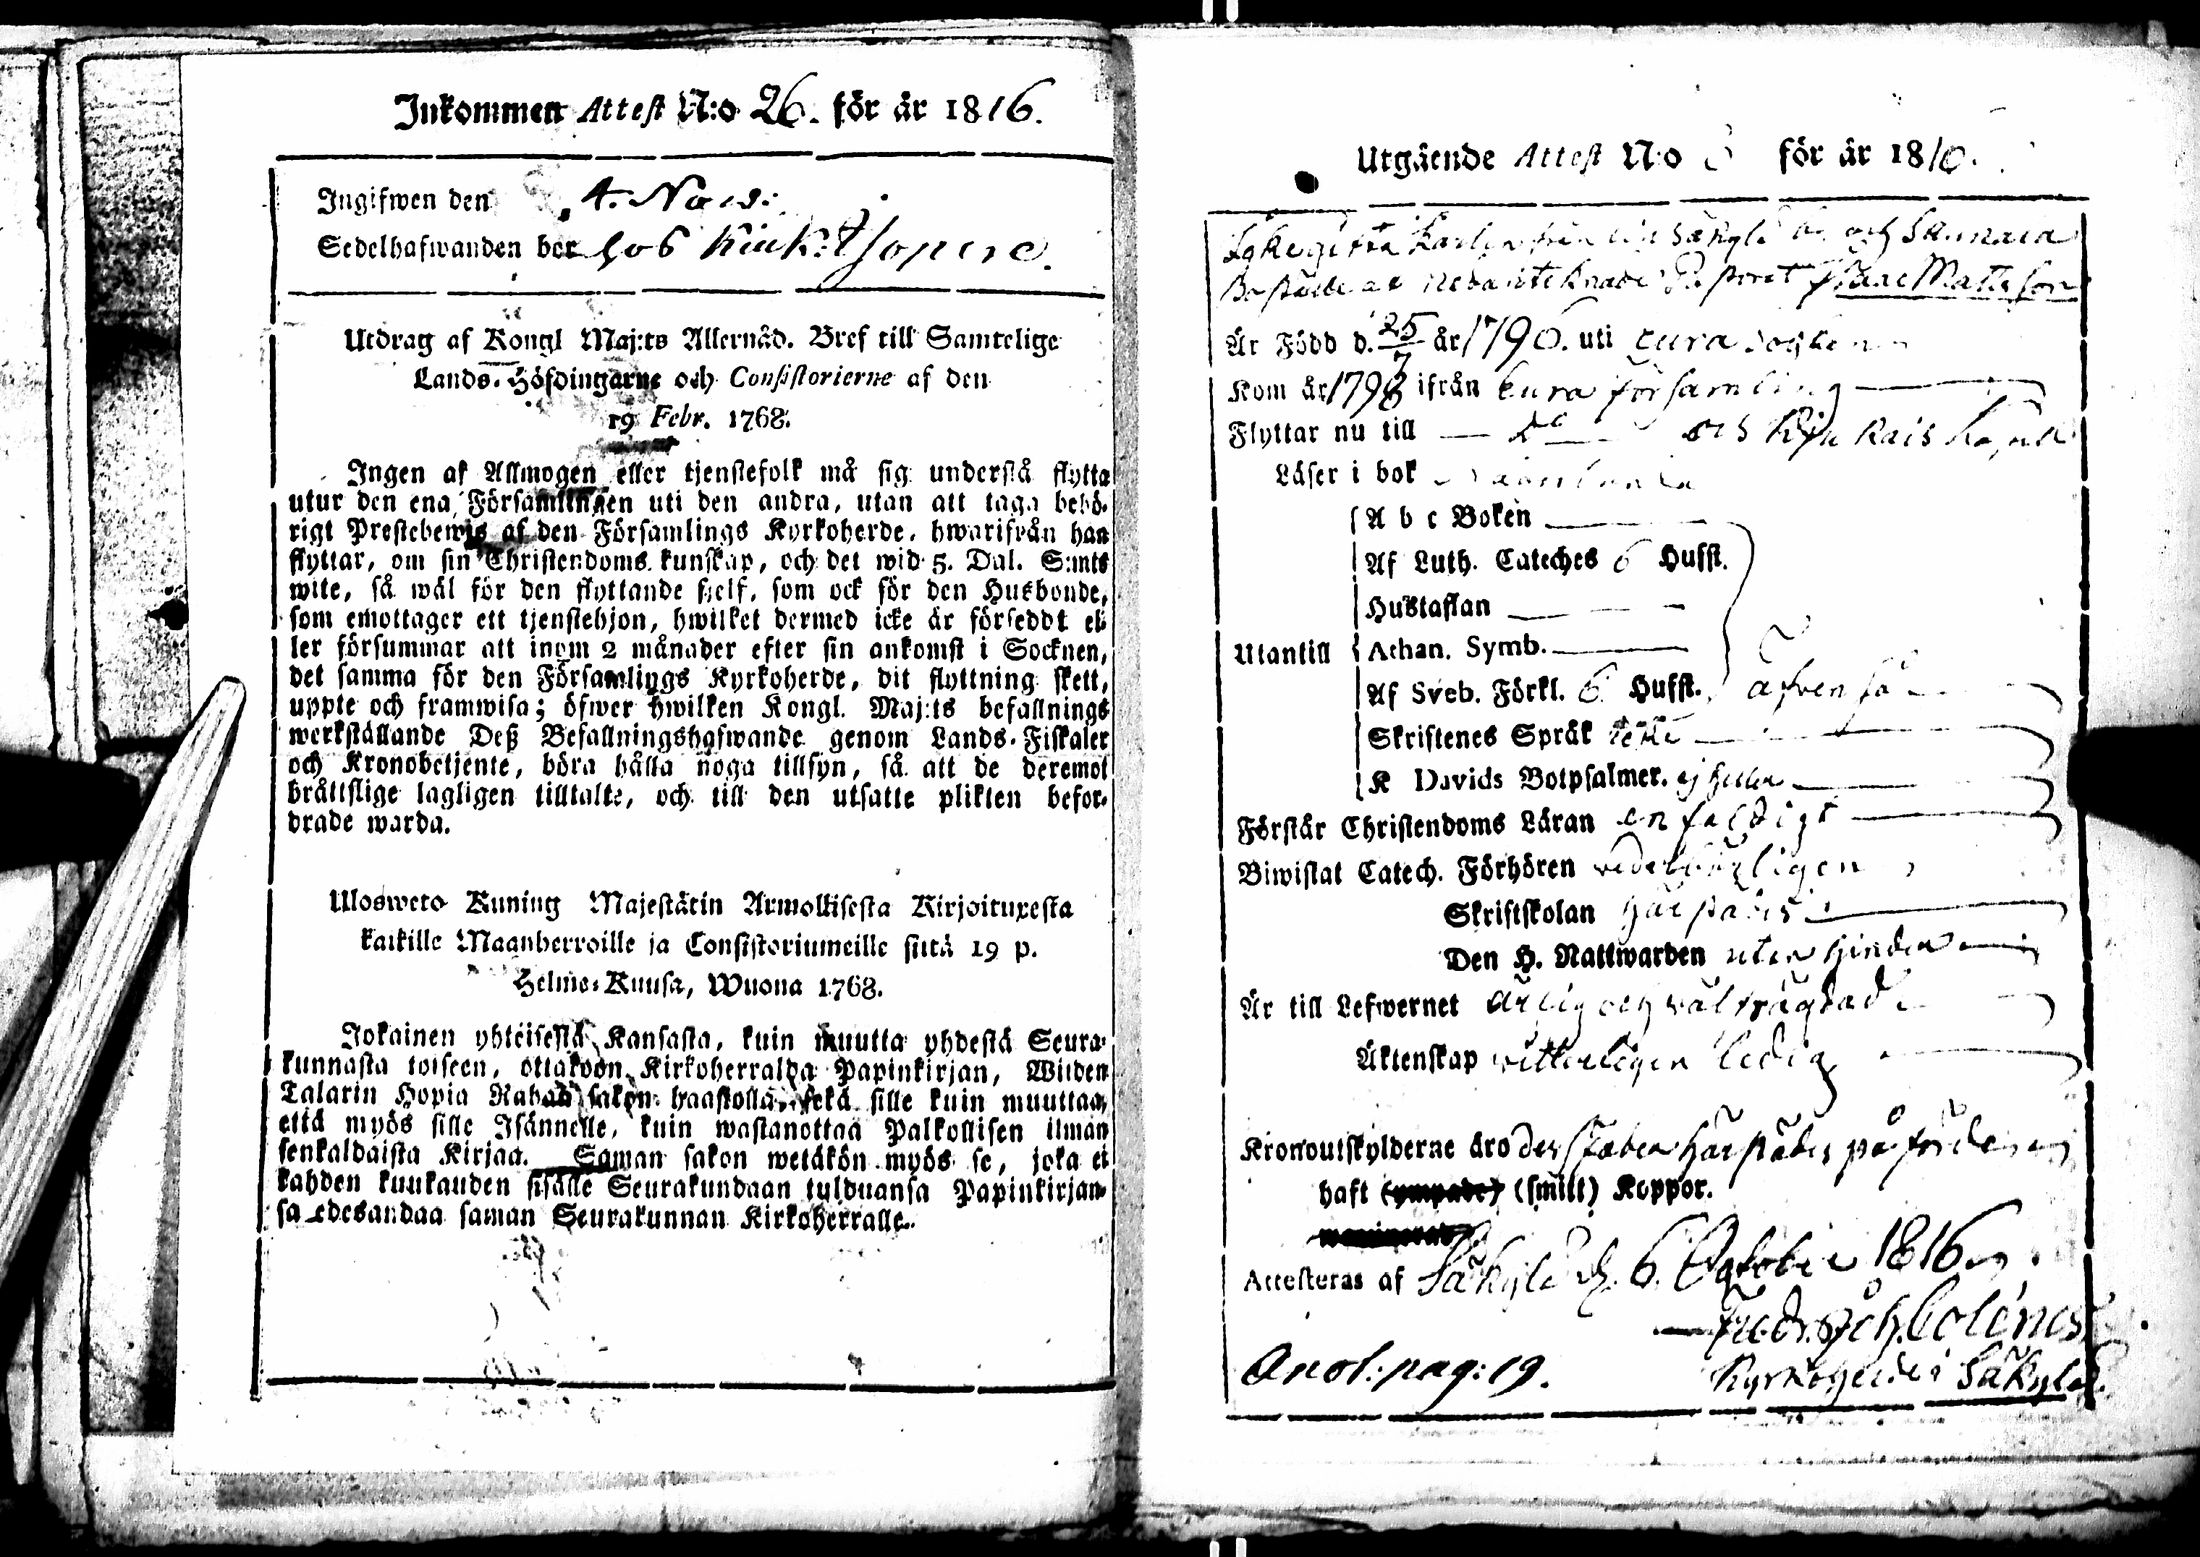 Inkommen Attest N:o 26. för år 1816.
Ingifwen den 4. Nov:
Sedelhafwanden bor hos
Utdrag af Kongl Maj:ts Allernåd. Bref till Samtelige
Lands-Höfdingarne och Consistorierne af den
19 Febr. 1768.
Ingen af Allmogen eller tjenstefolk må sig understå flytta
utur den ena Församlingen uti den andra, utan att taga behö-
rigt Prestebewis af den Församlings Kyrkoherde, hwarifrån han
flyttar, om sin Christendoms kunskap, och det wid 5. Dal. S:mts
wite, så wäl för den flyttande sjelf, som ock för den Husbonde,
som emottager ett tjenstehjon, hwilket dermed icke är förseddt el-
ler försummar att inom 2 månader efter sin ankomst i Socknen,
det samma för den Församlings Kyrkoherde, dit flyttning skett,
uppte och framwisa; öfwer hwilken Kongl. Maj:ts befallnings
werkställande Deß Befallningshafwande genom Lands-Fiskaler
och Kronobetjente, böra hålla noga tillsyn, så att de deremot
bråttslige lagligen tilltalte, och till den utsatte plikten befor-
drade warda.
Ulosweto Kuning Majestätin Armollisesta Kirjoituxesta
kaikille Maanherroille ja Consistoriumeille siitä 19 p.
Helme-Kuusa, Wuona 1768.
Jokainen yhteisestä Kansasta, kuin muutta yhdestä Seura-
kunnasta toiseen, ottakoon Kirkoherralda Papinkirjan, Wiiden
Talarin Hopia Rahan sakon haastolla, sekä sille kuin muuttaa,
että myös sille Isännelle, kuin wastanottaa Palkollisen ilman
senkaldaista Kirjaa. Saman sakon wetäkön myös se, joka ei
kahden kuukauden sisälle Seurakundaan tulduansa Papinkirjan-
sa edesandaa saman Seurakunnan Kirkoherralle.
Utgående Attest N:o för år 1816.
Isaac Mattsson
Är Född d. 25/7 år 1796. uti Eura Socken
Kom år 1798 ifrån Eura församling
Flyttar nu till do och
Läser i bok
A b c Boken
Af Luth. Cateches 6 Hufst.
Hustaflan
Utantill Athan. Symb.
Af Sveb. Förkl. 6. Hufst. äfven så
Skriftenes Språk icke
K Davids Botpsalmer. ej heller
Förstår Christendoms Läran enfaldigt
Biwistat Catech. Förhören vederbörligen
Skriftskolan härstädes
Den H. Nattwarden utan hinder
Är till Lefwernet ärlig och välfrägdad
Äktenskap vitterligen ledig
Kronoutskylderne äro härstädes påförde
haft (ympade) (smitt) Koppor.
Attesteras af Säkylä d. 6. October 1816
Kyrkoherde i Säkylä.
Anot: pag: 19.